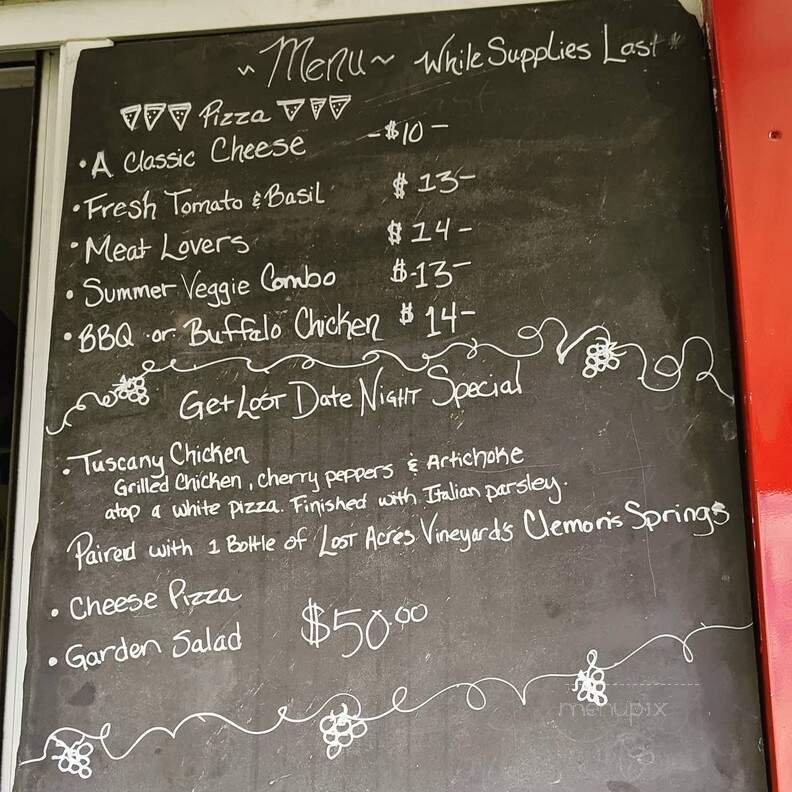 ~ Menu ~ While Supplies Last *
Pizza
• A Classic Cheese -$10-
• Fresh Tomato & Basil $13-
• Meat Lovers $14-
• Summer Veggie Combo $-13-
• BBQ or Buffalo Chicken $14-
Get Lost Date Night Special
• Tuscany Chicken
Grilled Chicken, cherry peppers & Artichoke
atop a white pizza. Finished with Italian parsley.
Paired with 1 Bottle of Lost Acres Vineyard's Clemon's Springs
• Cheese Pizza
• Garden Salad $50.00
menupix